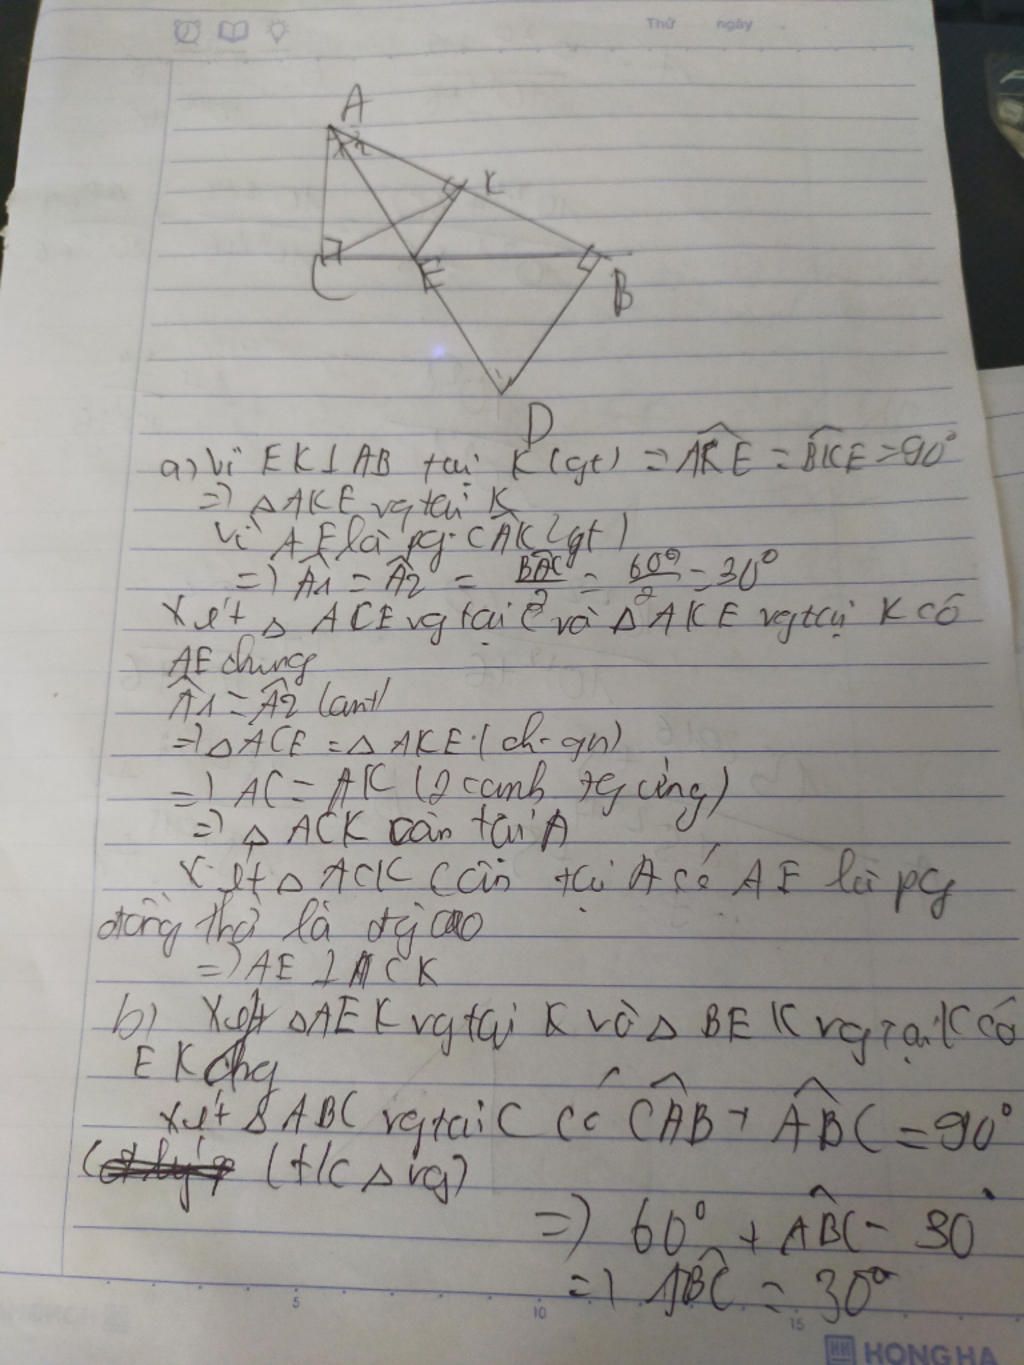 Thứ ngày
A
2
K
C
E
B
D
a) Vì EK⊥AB tại K (gt) => AKE = BKE = 90°
=> △AKE vg tại K
Vì AE là pg CAK (gt)
=> A1 = A2 = BAC/2 = 60°/2 = 30°
Xét △ ACE vg tại C và △ AKE vg tại K có
AE chung
A1 = A2 (cmt)
=> △ ACE = △ AKE (ch-gn)
=> AC = AK (2 cạnh tg ứng)
=> △ ACK cân tại A
Xét △ ACK cân tại A có AE là pg
đồng thời là đg cao
=> AE ⊥ CK
b) Xét △AEK vg tại K và △ BEK vg tại K có
EK chg
Xét △ ABC vg tại C có CAB + ABC = 90°
(t/c △ vg)
=> 60° + ABC = 90
=> ABC = 30°
5
10
15
HONG HA